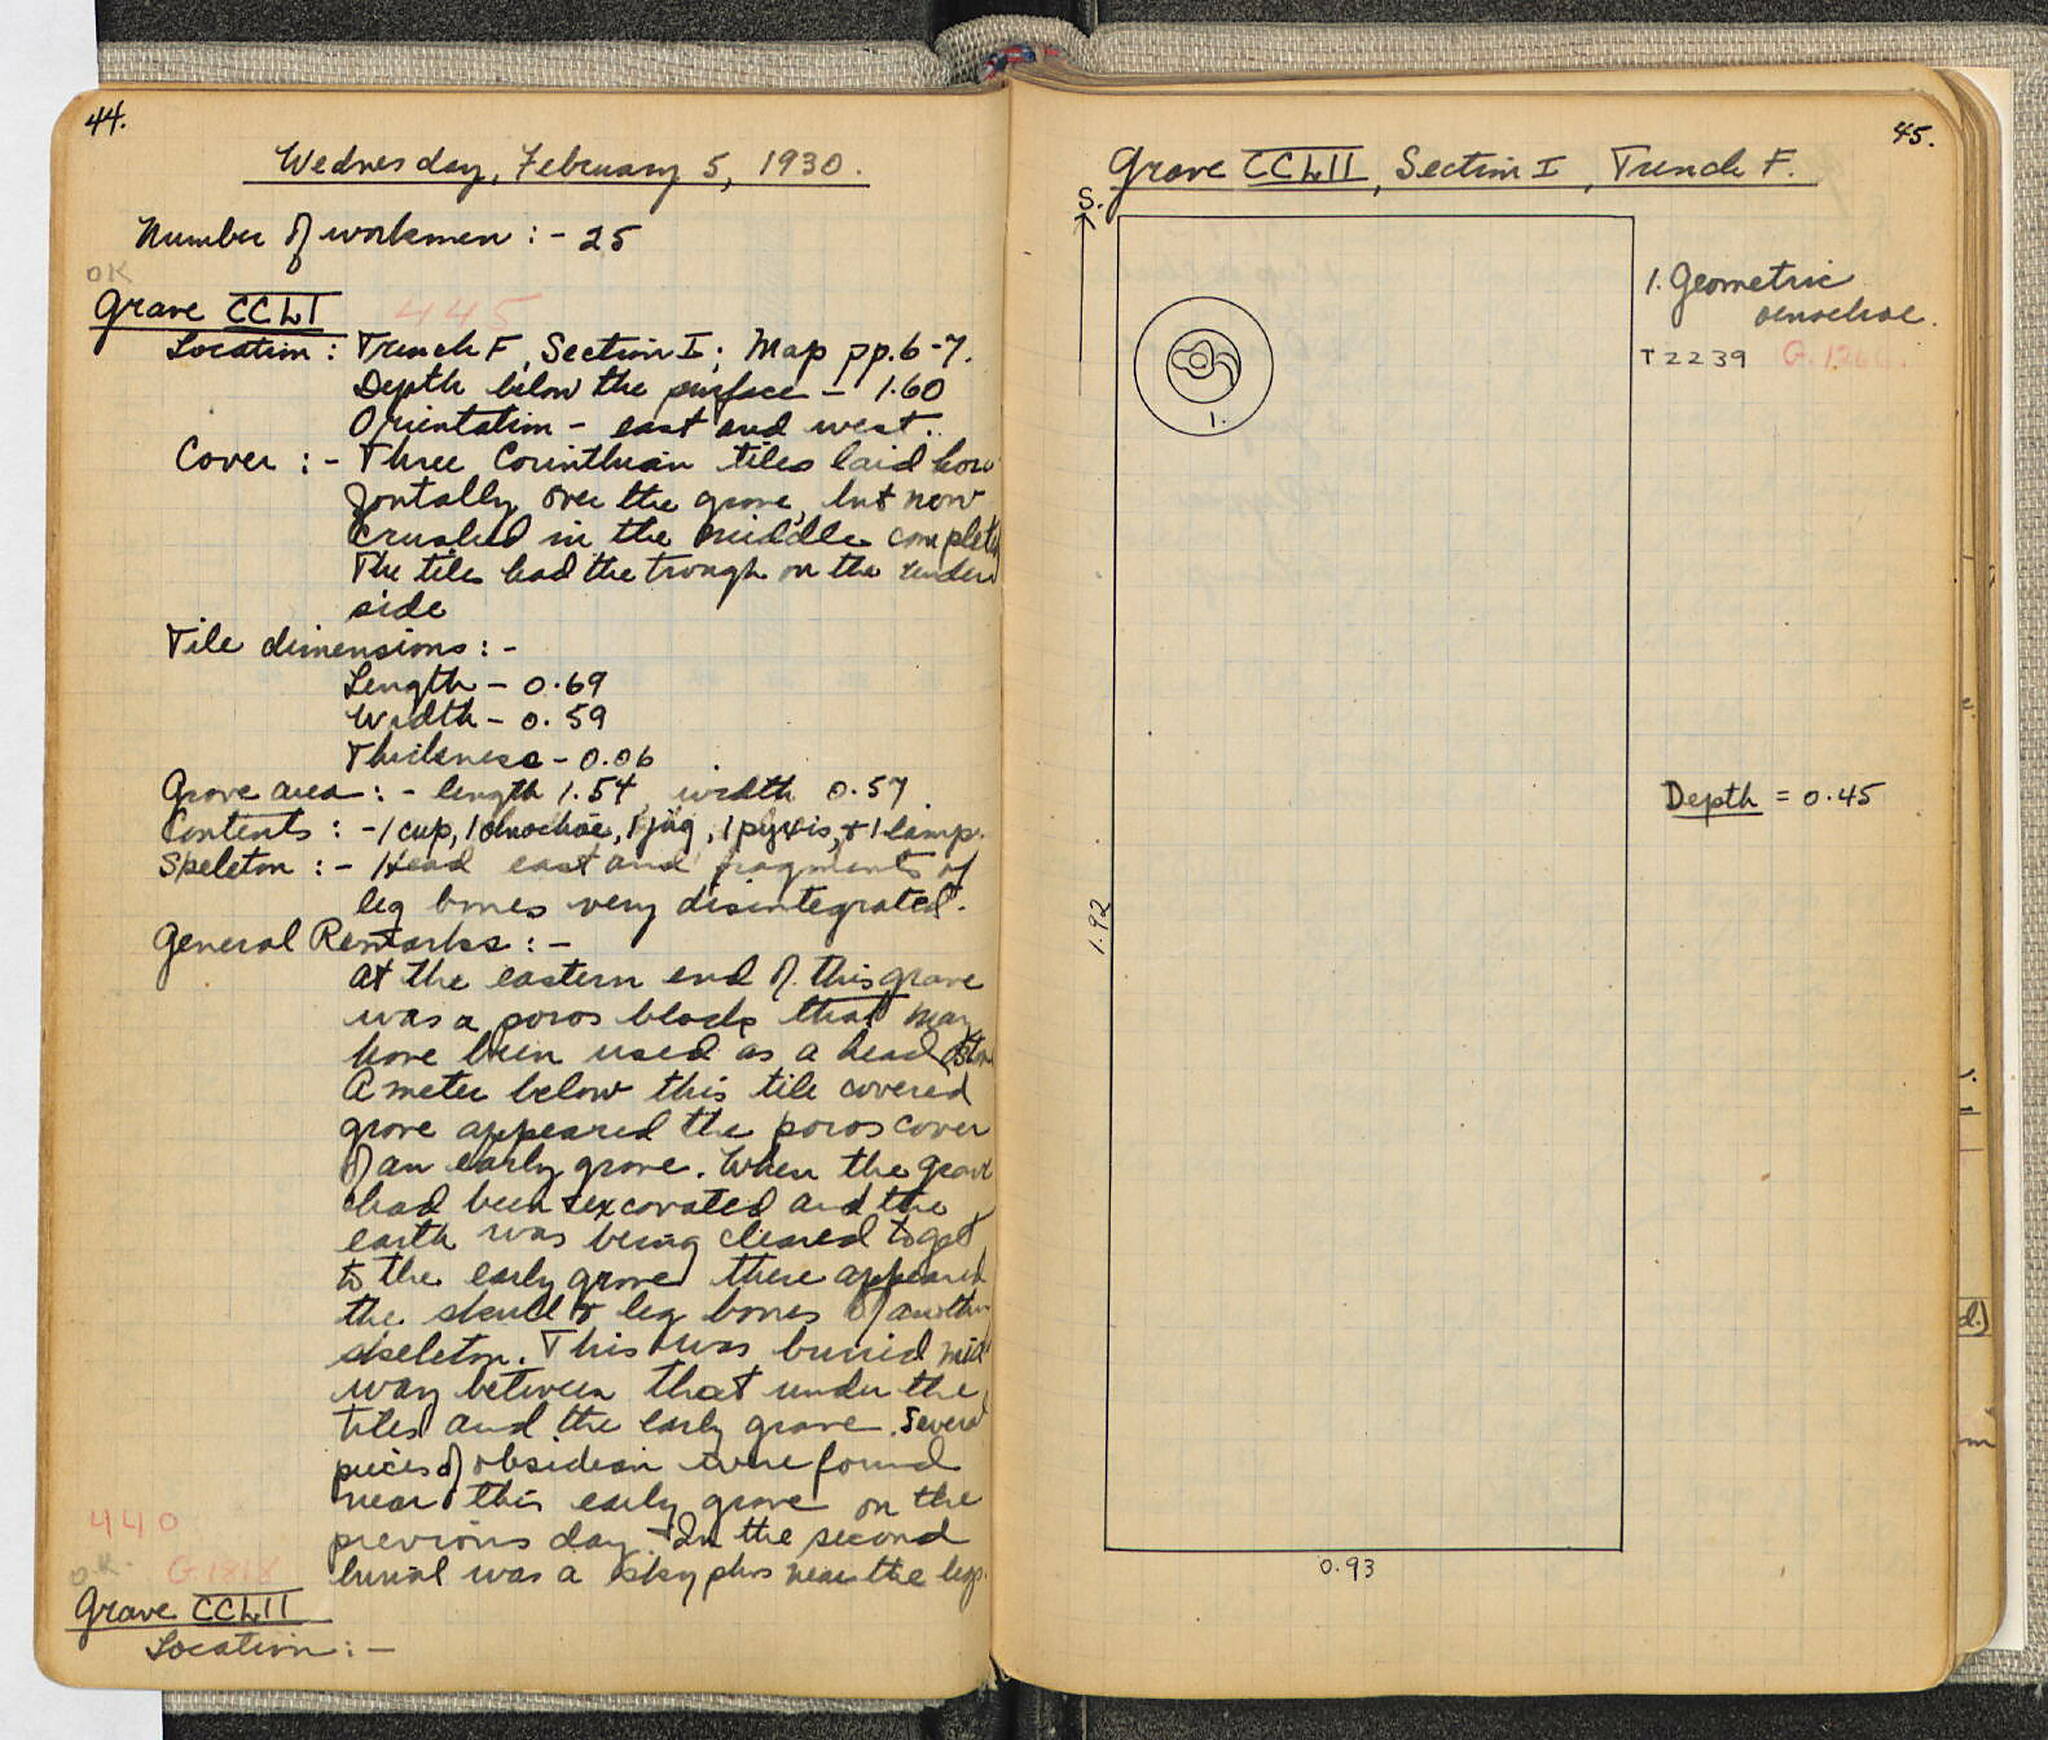 44.
Wednesday, February 5, 1930.
Number of workmen : - 25
OK
Grave CCLI
445
Location : Trench F, Section I; Map pp. 6-7.
Depth below the surface - 1.60
Orientation - east and west.
Cover : - Three Corinthian tiles laid hori
zontally over the grave, but now
crushed in the middle complete
The tiles had the trough on the under
side
Tile dimensions : -
Length - 0.69
Width - 0.59
Thickness - 0.06
Grave area : - length 1.54, width 0.57.
Contents : - 1 cup, 1 oinochoe, 1 jug, 1 pyxis, + 1 lamp.
Skeleton : - Head east and fragments of
leg bones very disintegrated.
General Remarks : -
At the eastern end of this grave
was a poros block that may
have been used as a head stone
A meter below this tile covered
grave appeared the poros cover
of an early grave. When the grave
had been excavated and the
earth was being cleared to get
to the early grave there appeared
the skull & leg bones of another
skeleton. This was buried mid
way between that under the
tiles and the early grave. Several
pieces of obsidian were found
near this early grave on the
previous day. In the second
burial was a skyphos near the legs.
440
OK
G.1818
Grave CCLII
Location : -
45.
Grave CCLII, Section I, Trench F.
S.
1. Geometric
oenochoe.
T 2239
1.
Depth = 0.45
1.92
0.93